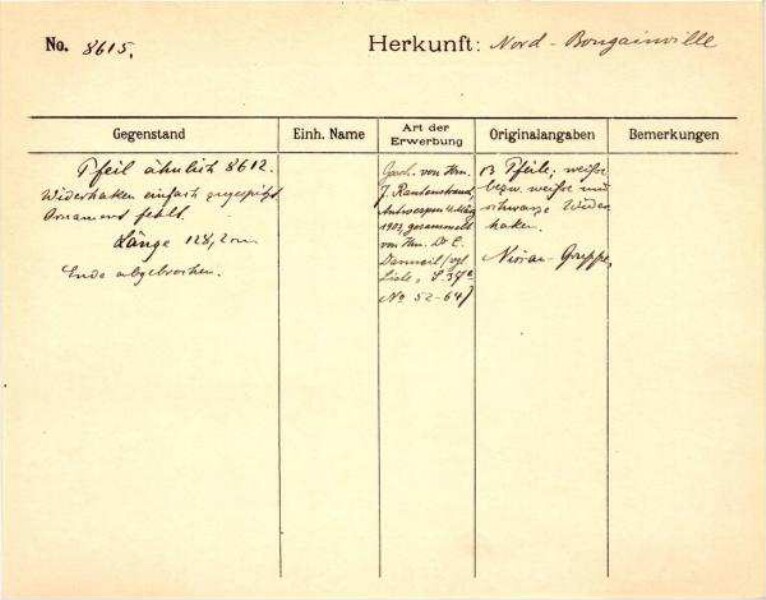 No. 8615.
Herkunft: Nord-Bougainville
Gegenstand
Einh. Name
Art der Erwerbung
Originalangaben
Bemerkungen
Pfeil ähnlich 8612.
Widerhaken einfach zugespitzt.
Ornament fehlt.
Länge 128,2 cm.
Ende abgebrochen.
Gesch. von Hrn.
J.
Antwerpen März
1903, gesammelt
von Hrn. Dr. E.
(vgl.
Liste, S.
No 52-64)
13 Pfeile; weiße
bezw. weiße und
schwarze Wider
haken.
Nissan-Gruppe,